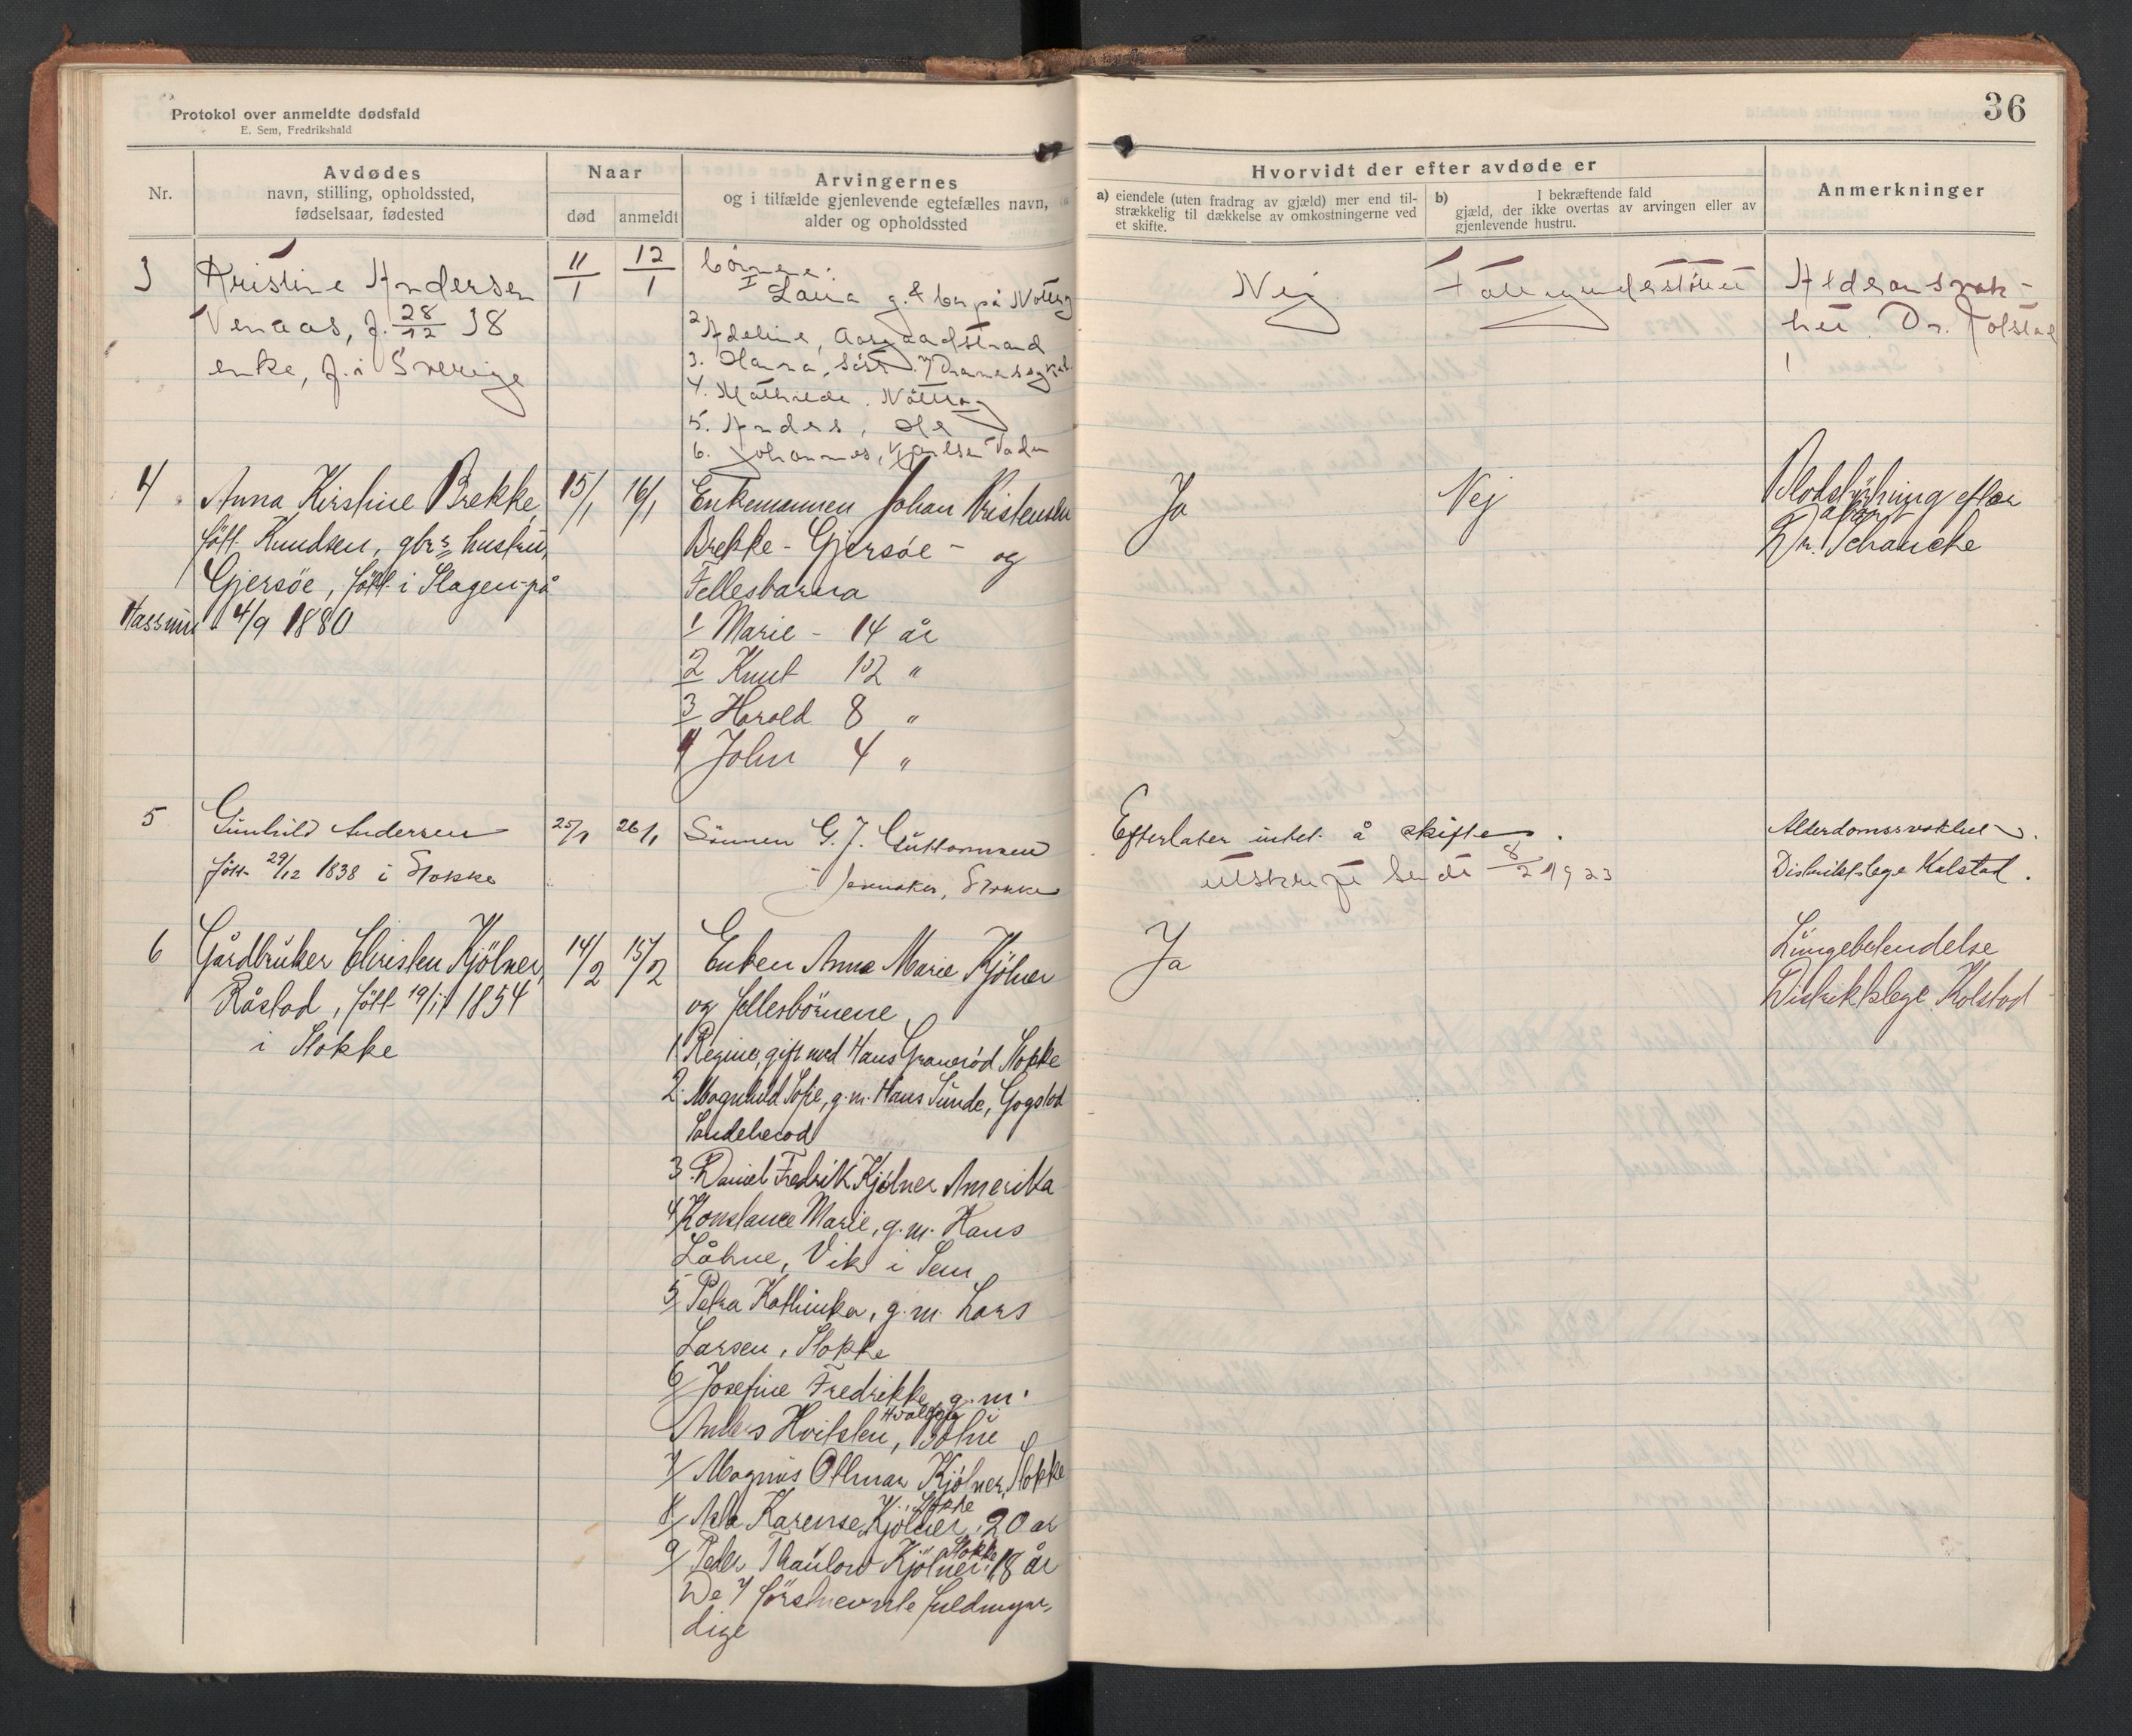 Protokol over anmeldte dødsfald
E. Sem, Fredrikshald
36
Nr.
Avdødes
navn, stilling, opholdssted,
fødselsaar, fødested
Naar
død
anmeldt
Arvingernes
og i tilfælde gjenlevende egtefælles navn,
alder og opholdssted
Hvorvidt der efter avdøde er
a) eiendele (uten fradrag av gjæld) mer end til-
strækkelig til dækkelse av omkostningerne ved
et skifte.
b) I bekræftende fald
gjæld, der ikke overtas av arvingen eller av
gjenlevende hustru.
Anmerkninger
3
Kristine Andersen
Venaas, f. 28/12 38
enke, f. i Sverige
11/1
12/1
börnene:
1 g. & bor på Nötterö
2 Adeline, Aasgaardstrand
3. Hanna,
4. Mathilde. Nötterö
5. Anders,
6. Johannes,
Nei
Fattigunderstöttet
Alderdomsvak-
het Dr. Kolstad
4
Anna Kirstine Brekke,
fött Knudsen, gbr.s hustru,
Gjersöe, fött i Slagen på
4/9 1880
15/1
16/1
Enkemannen Johan Kristensen
Brekke - Gjersöe - og
Fellesbarna
1 Marie - 14 år
2 Knut 12 "
3 Harald 8 "
4 John 4 "
Ja
Nej
Blodstyrtning efter
abort
Dr. Schanche
5
Gunhild Andersen
fött 29/12 1838 i Stokke
25/1
26/1
Sönnen G. J. Guttormsen
Stokke
Efterlater intet å skifte.
utskrift sendt 8/2 1923
Alderdomssvakhet.
Distriktslege Kolstad.
6
Gårdbruker Christen Kjölner,
Råstad, fött 19/11 1854
i Stokke
14/2
15/2
Enken Anna Marie Kjölner
og fellesbörnene
1 Regine, gift med Hans Granerød Stokke
2. Magnhild Sofie, g.m. Hans Sunde, Gogstad
Sandeherad
3. Daniel Fredrik Kjölner Amerika
4 Konstance Marie, g.m. Hans
Låhne, Vik i Sem
5 Petra Kathinka, g.m. Lars
Larsen, Stokke
6 Josefine Fredrikke, g.m.
Anders Hvitsten,
7 Magnus Othmar Kjölner, Stokke
8 Karense Kjölner, Stokke 20 år
9 Peder Thaulow Kjölner, Stokke 18 år
De 7 förstnevnte fuldmyn-
dige
Ja
Lungebetendelse
Distriktslege Kolstad